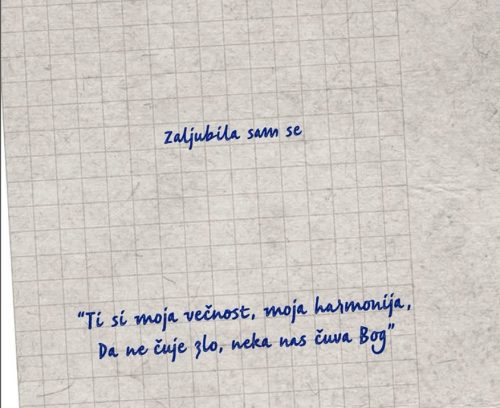 Zaljubila sam se
“Ti si moja večnost, moja harmonija,
Da ne čuje zlo, neka nas čuva Bog”